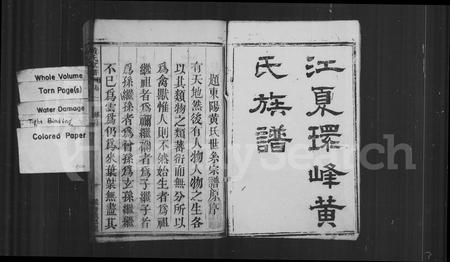 江夏環峰黃
氏族譜
題東陽黃氏世系宗譜原序
有天地然後有人物人物之生各
以其類物之類蕃衍而無分所以
為禽獸惟人則不然始生者為祖
繼祖者為禰繼禰者為子繼子者
為孫繼孫者為曾孫為玄孫繼繼
不已為雲為仍為來葉葉無盡其
Whole Volume
Torn Page(s)
Water Damage
Tight Binding
Colored Paper